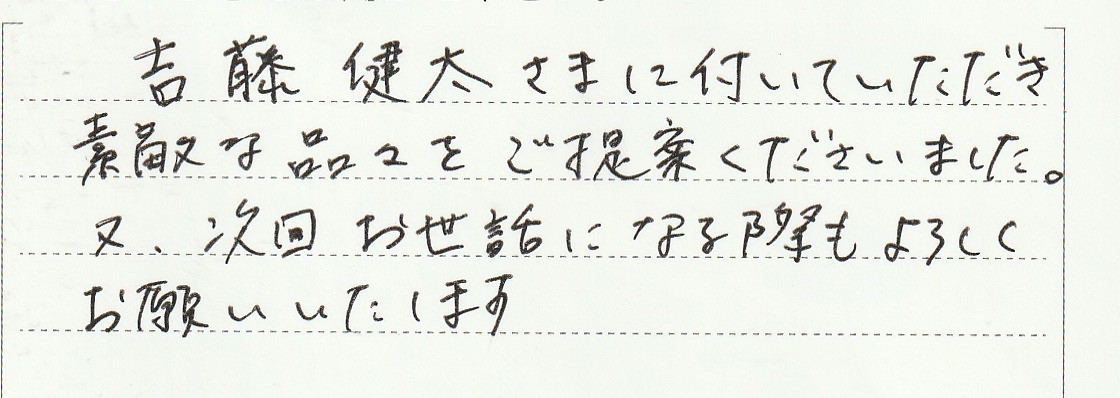 吉藤 健太さまに付いていただき
素敵な品々をご提案くださいました。
又、次回お世話になる際もよろしく
お願いいたします